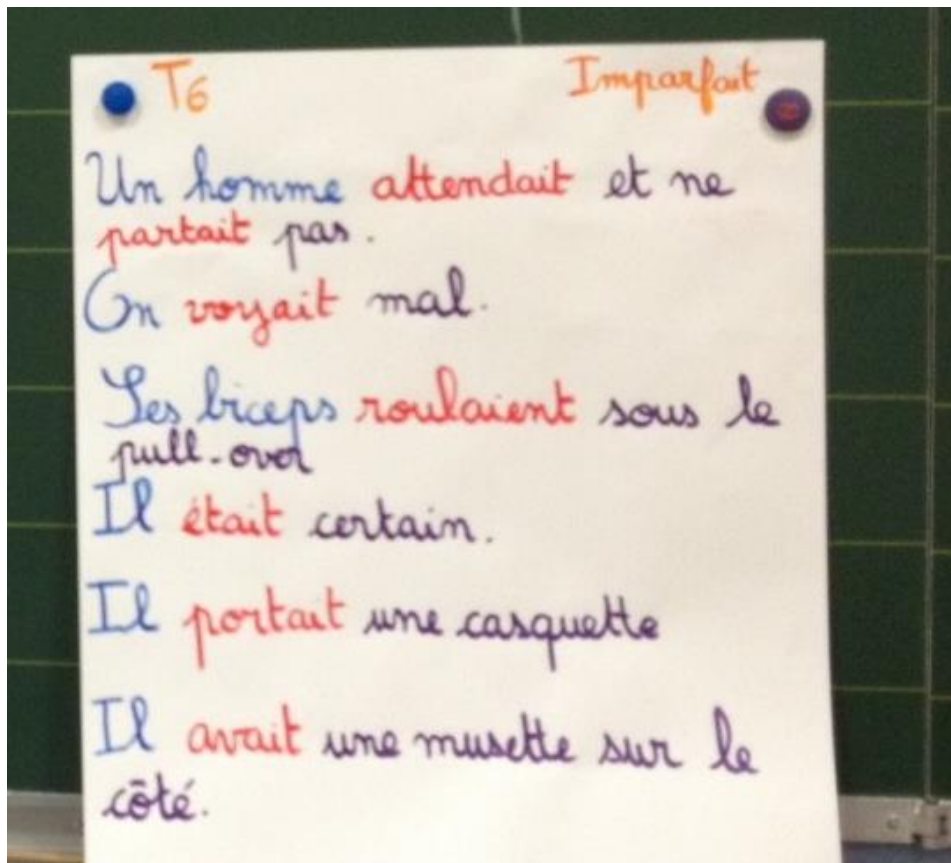 T6 Imparfait
Un homme attendait et ne
partait pas.
On voyait mal.
Ses biceps roulaient sous le
pull-over
Il était certain.
Il portait une casquette
Il avait une musette sur le
côté.